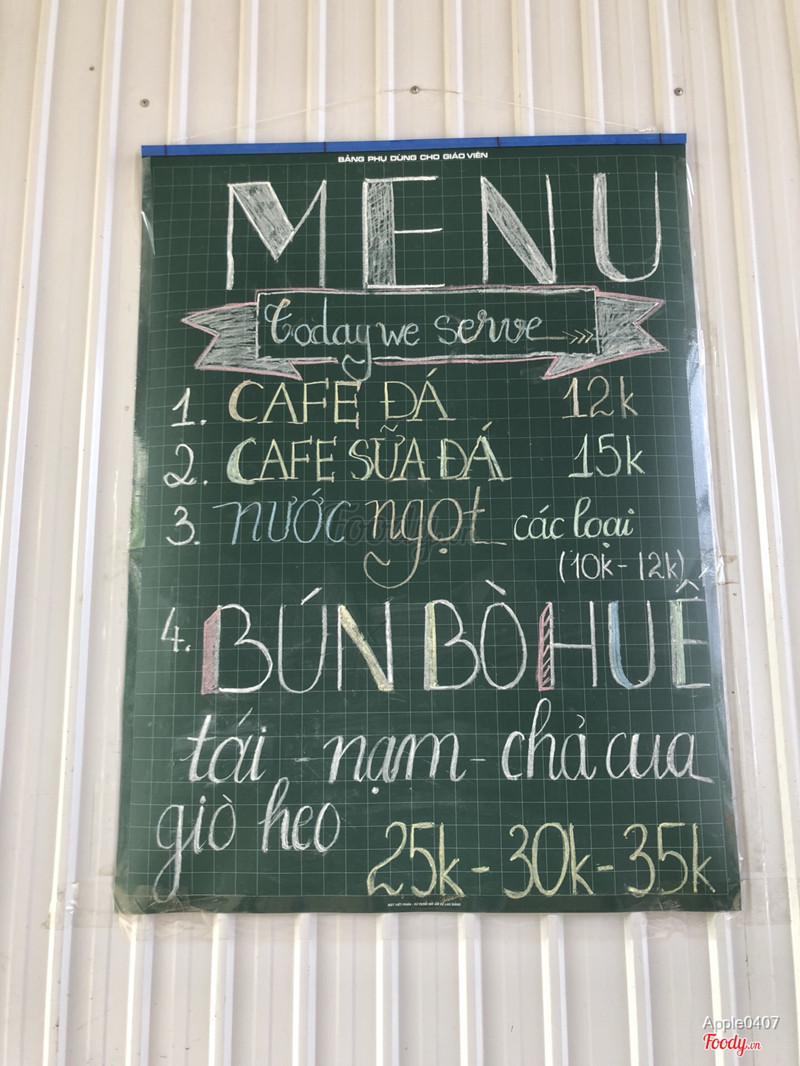 BẢNG PHỤ DÙNG CHO GIÁO VIÊN
MENU
Today we serve
1. CAFE ĐÁ 12k
2. CAFE SỮA ĐÁ 15k
3. nước ngọt các loại
(10k - 12k)
4. BÚN BÒ HUẾ
tái - nạm - chả cua
giò heo
25k - 30k - 35k
Foody.vn
Apple0407
Foody.vn